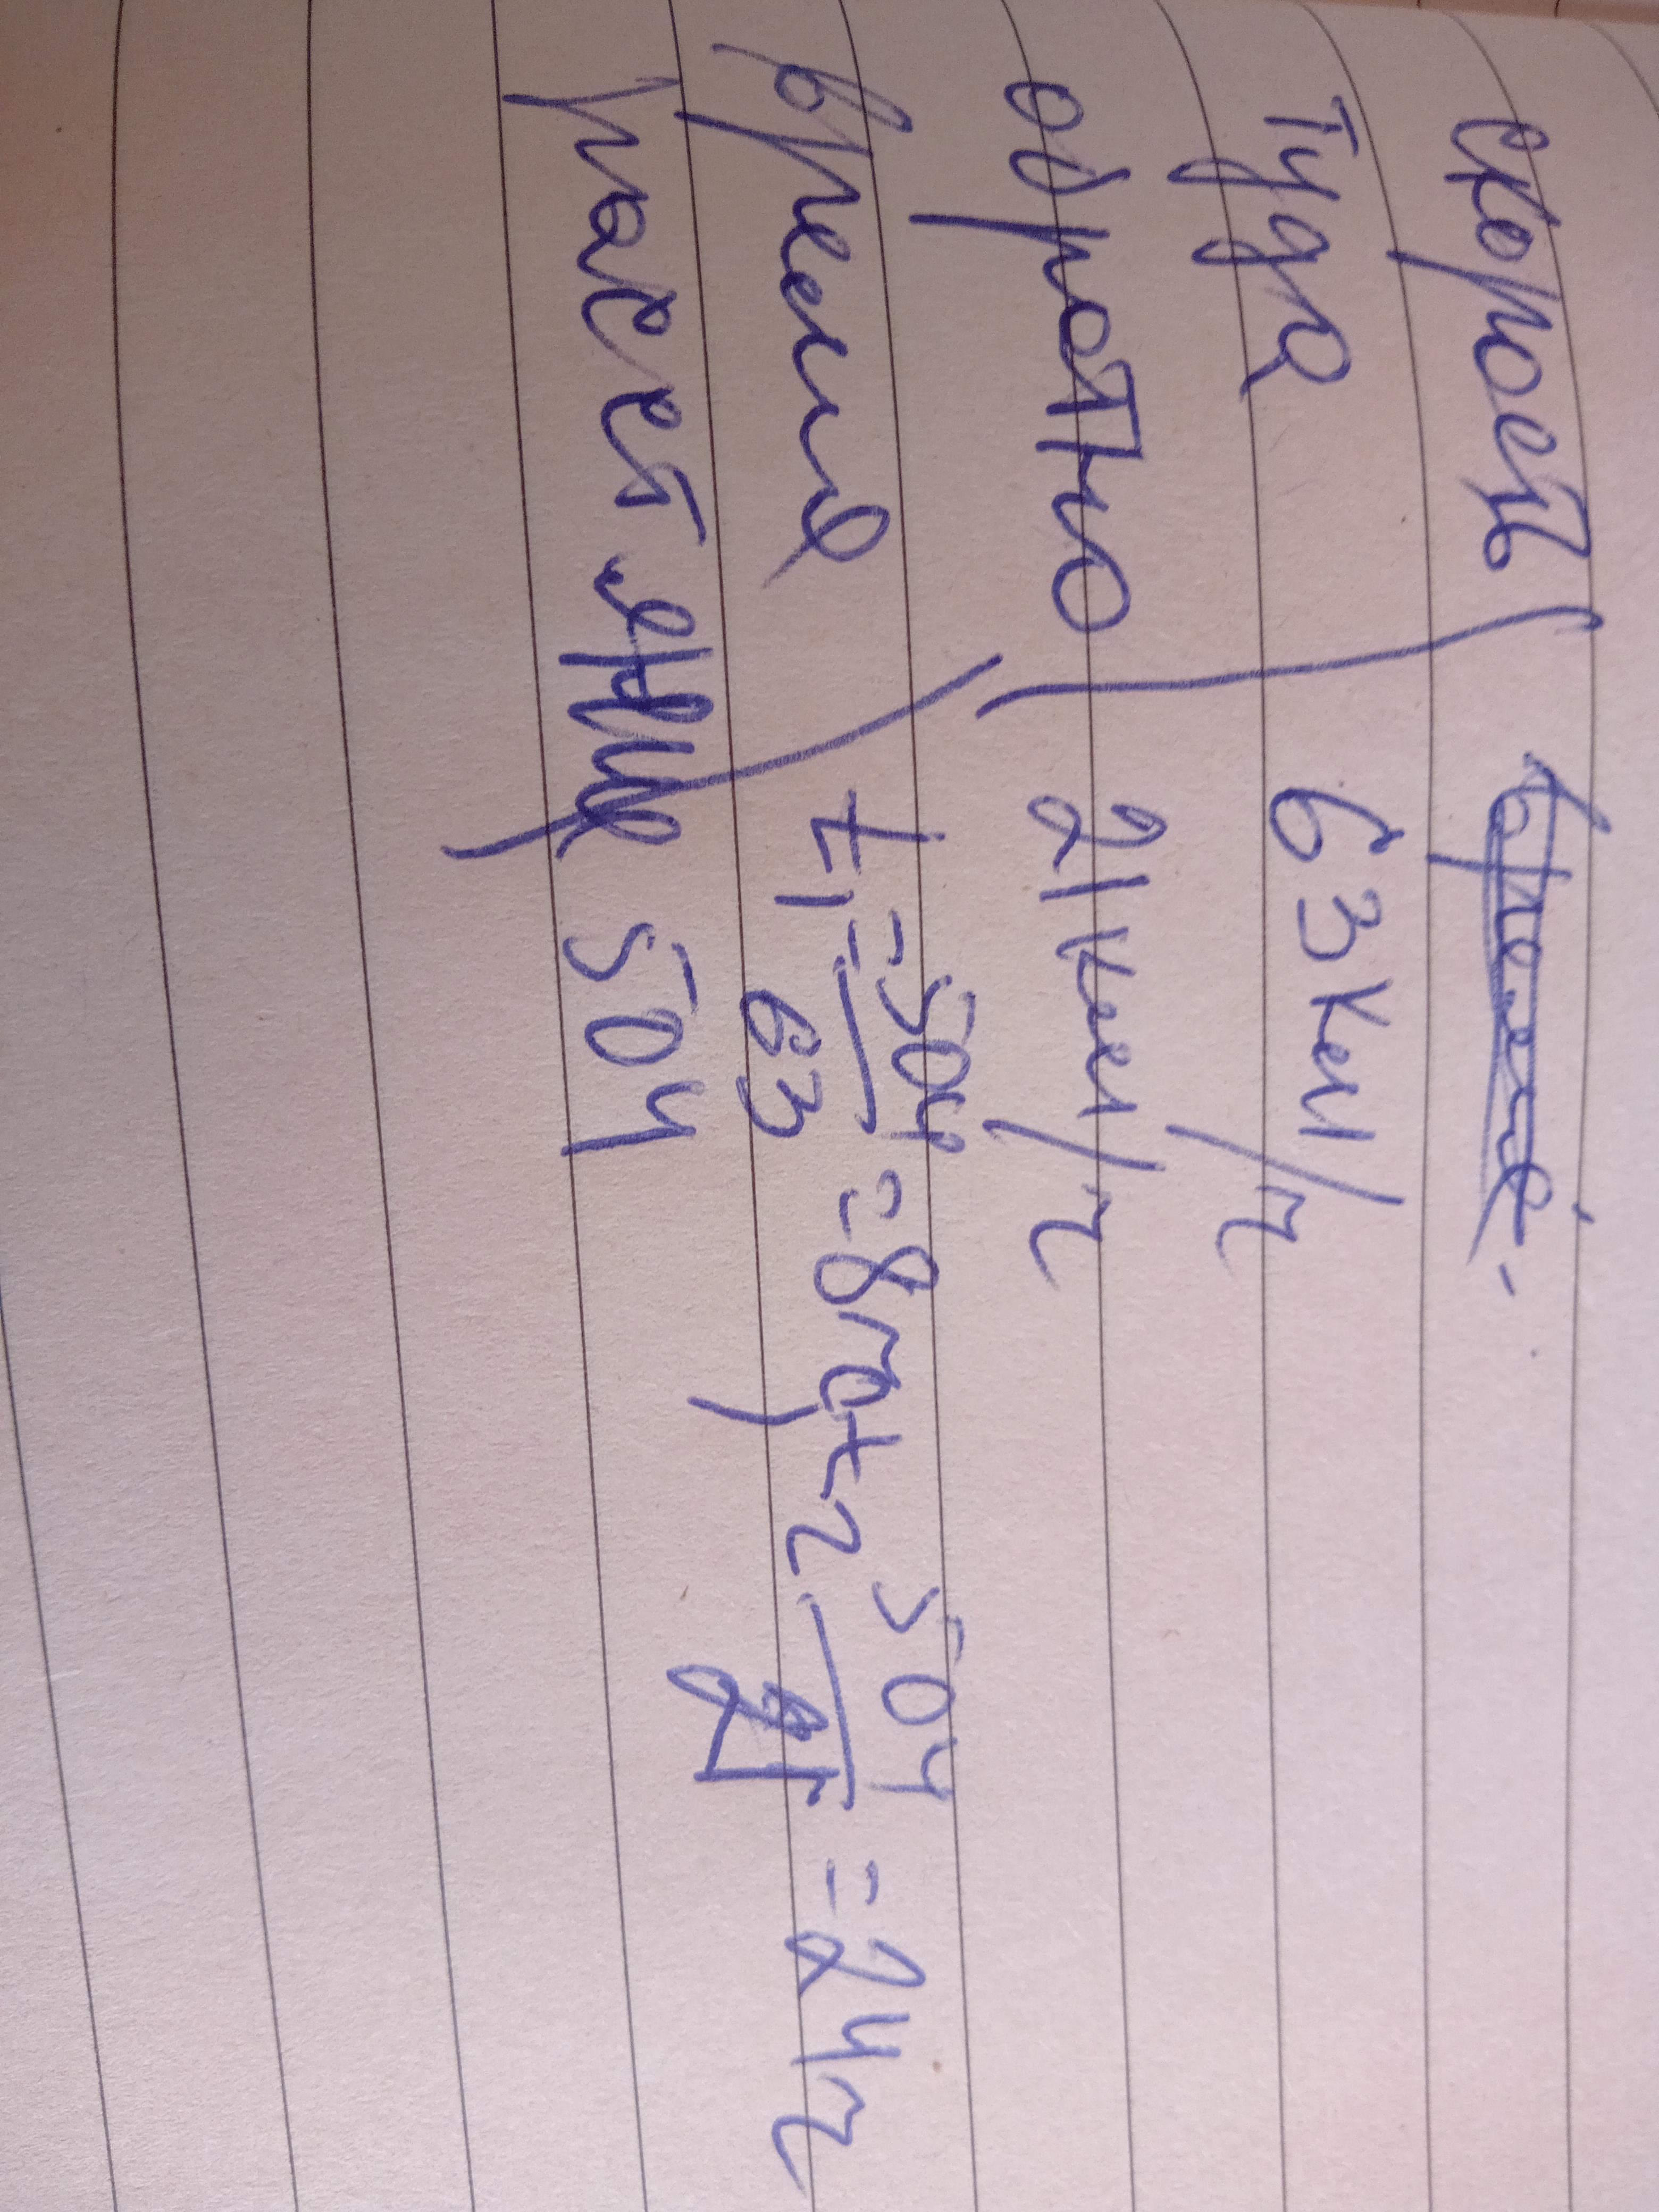 скорость
туда 63 км/ч
обратно 21 км/ч
время t1 = 504/63 = 8ч, t2 504/21 = 24ч
расст 504